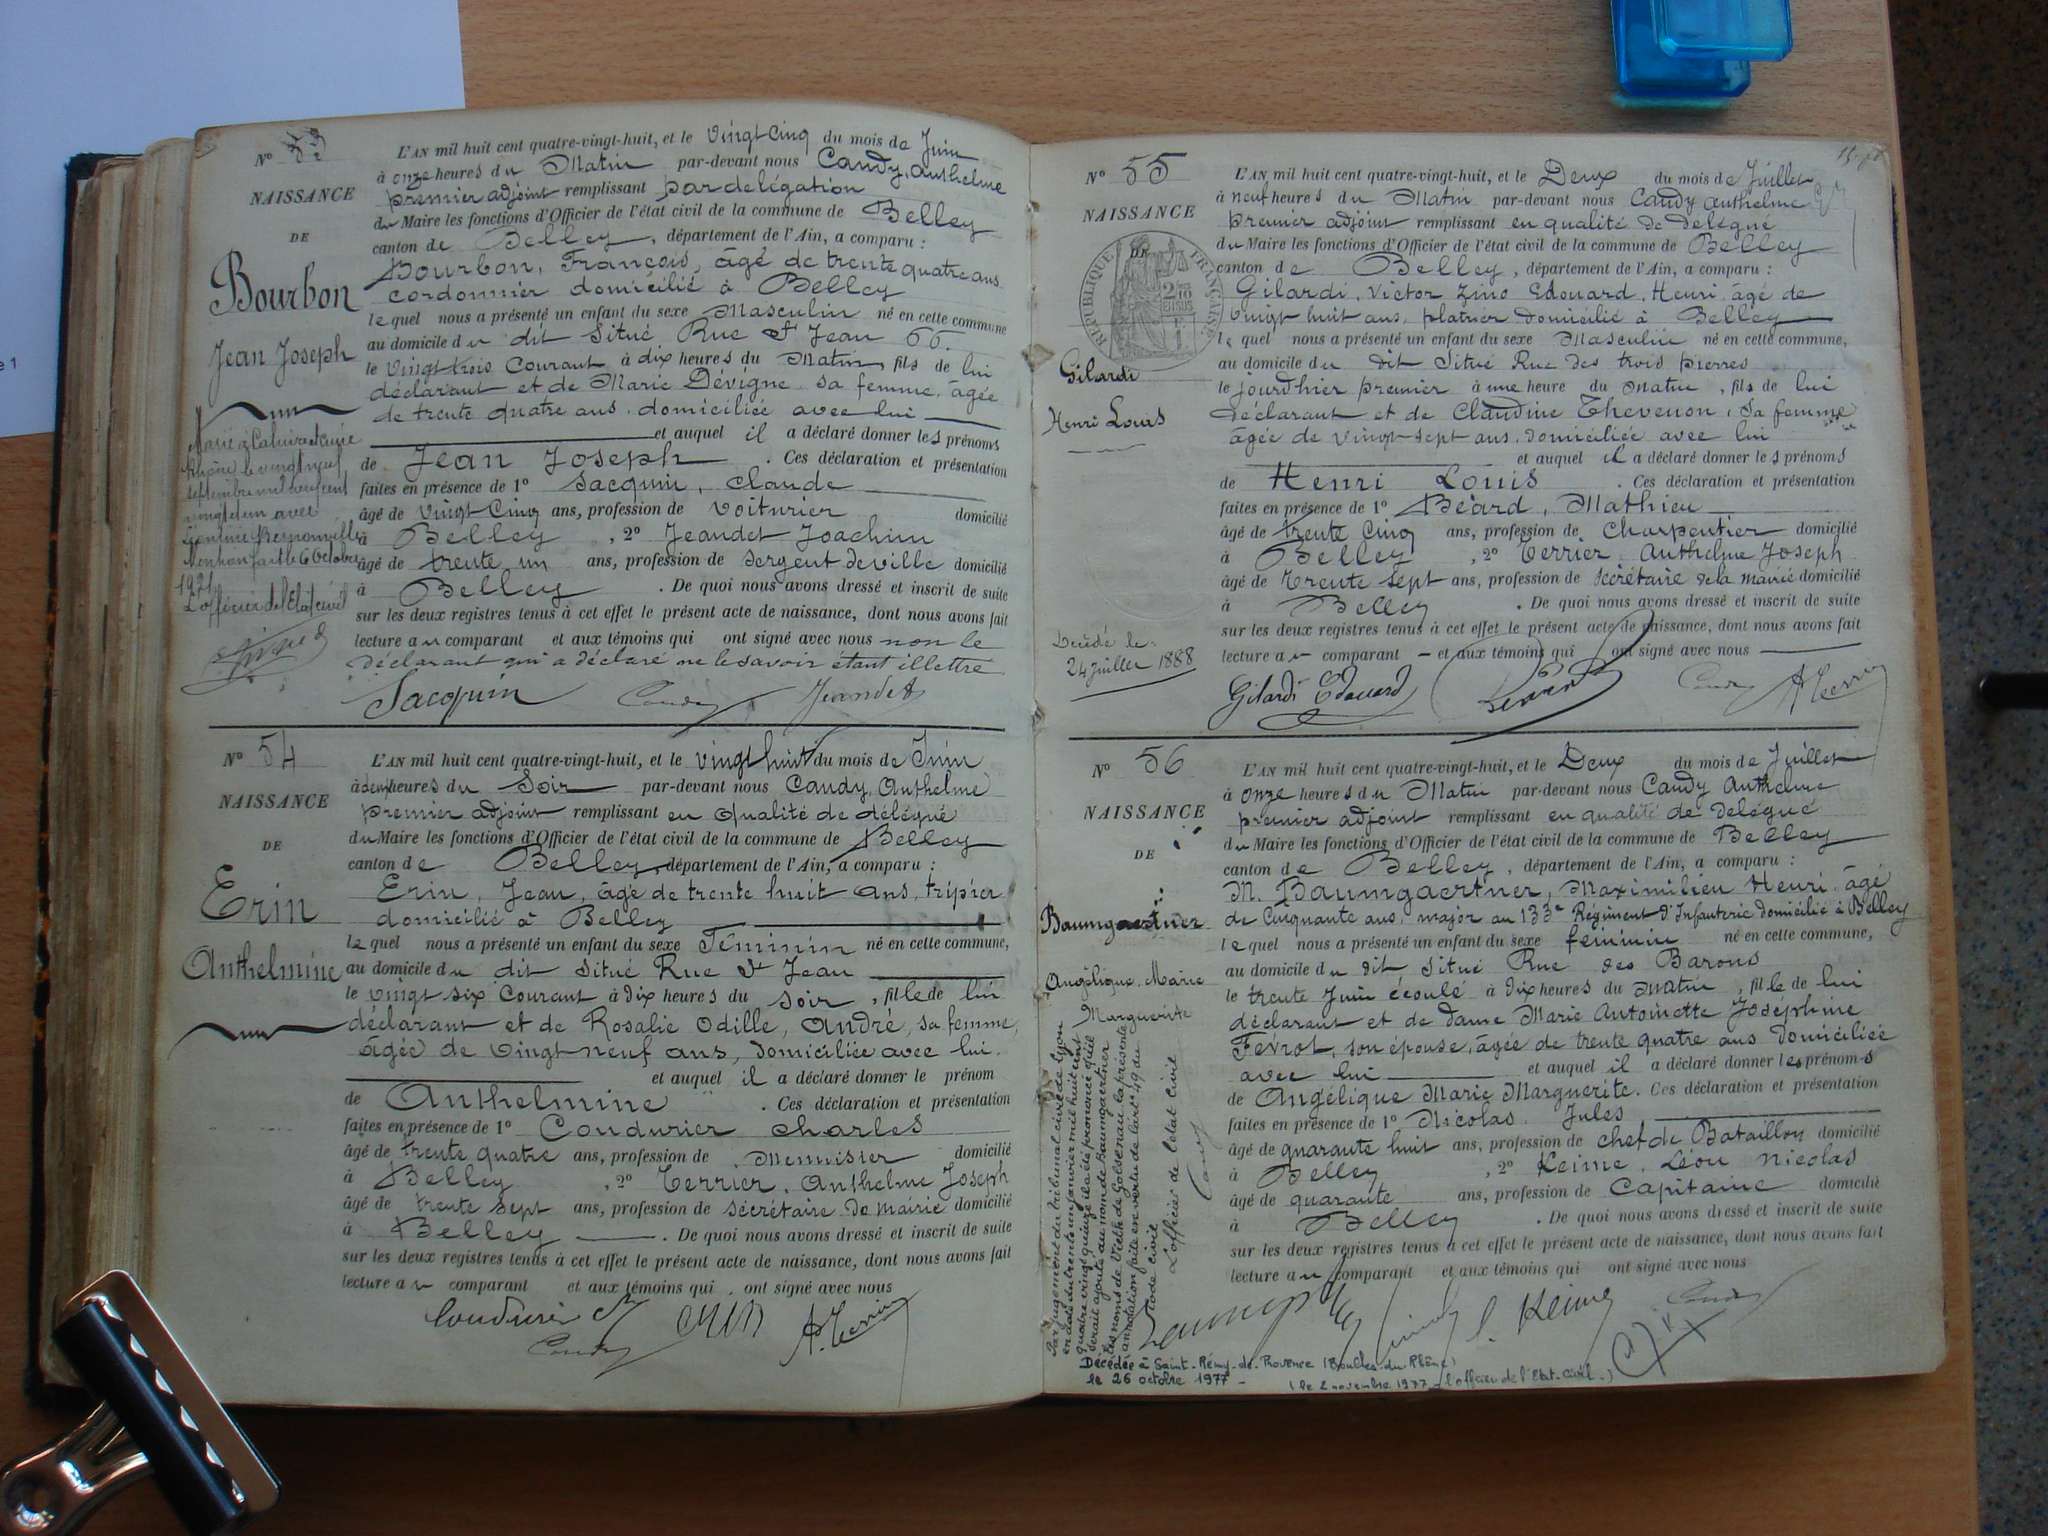 e 1
Nº 53
NAISSANCE
DE
Bourbon
Jean Joseph
Marié à Caluire et Cuire
Rhône le vingt neuf
septembre mil neuf cent
vingt et un avec
Mention faite le 6 Octobre
1921
L'officier de l'Etat civil
L'AN mil huit cent quatre-vingt-huit, et le vingt cinq du mois de Juin
à onze heures du Matin par-devant nous Candy, Anthelme
premier adjoint remplissant par delégation
du Maire les fonctions d'Officier de l'état civil de la commune de Belley
canton de Belley, département de l'Ain, a comparu :
Bourbon, François, âgé de trente quatre ans
cordonnier domicilié à Belley
lequel nous a présenté un enfant du sexe Masculin né en cette commune
au domicile du dit situé Rue St Jean 66.
le vingt trois courant à dix heures du Matin, fils de lui
déclarant et de Marie Dévigne sa femme, âgée
de trente quatre ans, domiciliée avec lui
et auquel il a déclaré donner les prénoms
de Jean Joseph. Ces déclaration et présentation
faites en présence de 1º Sacquin, Claude
âgé de vingt cinq ans, profession de voiturier domicilié
à Belley, 2º Jeandet Joachim
âgé de trente un ans, profession de sergent de ville domicilié
à Belley. De quoi nous avons dressé et inscrit de suite
sur les deux registres tenus à cet effet le présent acte de naissance, dont nous avons fait
lecture au comparant et aux témoins qui ont signé avec nous non le
déclarant qui a déclaré ne le savoir étant illettré
Sacquin Candy Jeandet
Nº 54
NAISSANCE
DE
Erin
Anthelmine
L'AN mil huit cent quatre-vingt-huit, et le vingt huit du mois de Juin
à deux heures du Soir par-devant nous Candy, Anthelme
premier adjoint remplissant en qualité de délégué
du Maire les fonctions d'Officier de l'état civil de la commune de Belley
canton de Belley, département de l'Ain, a comparu :
Erin, Jean, âgé de trente huit ans, tripier
domicilié à Belley
lequel nous a présenté un enfant du sexe Féminin né en cette commune,
au domicile du dit situé Rue St Jean
le vingt six courant à dix heures du soir, fille de lui
déclarant et de Rosalie Odille, André, sa femme,
âgée de vingt neuf ans, domiciliée avec lui.
et auquel il a déclaré donner le prénom
de Anthelmine. Ces déclaration et présentation
faites en présence de 1º Coudurier Charles
âgé de trente quatre ans, profession de Menuisier domicilié
à Belley, 2º Terrier, Anthelme Joseph
âgé de trente sept ans, profession de secrétaire de mairie domicilié
à Belley. De quoi nous avons dressé et inscrit de suite
sur les deux registres tenus à cet effet le présent acte de naissance, dont nous avons fait
lecture au comparant et aux témoins qui ont signé avec nous
Coudurier Ch Erin A. Terrier
Candy
Nº 55
NAISSANCE
DE
RÉPUBLIQUE FRANÇAISE
Gilardi
Henri Louis
Décédé le
24 juillet 1888
L'AN mil huit cent quatre-vingt-huit, et le Deux du mois de Juillet
à neuf heures du Matin par-devant nous Candy Anthelme
premier adjoint remplissant en qualité de delégué
du Maire les fonctions d'Officier de l'état civil de la commune de Belley
canton de Belley, département de l'Ain, a comparu :
Gilardi, Victor Zino Edouard, Henri âgé de
vingt huit ans, platrier domicilié à Belley
lequel nous a présenté un enfant du sexe Masculin né en cette commune,
au domicile du dit Situé Rue des trois pierres
le jourdhier premier à une heure du matin, fils de lui
déclarant et de Claudine Thevenon, sa femme
âgée de vingt-sept ans, domiciliée avec lui
et auquel il a déclaré donner les prénoms
de Henri Louis. Ces déclaration et présentation
faites en présence de 1º Béard, Mathieu
âgé de trente cinq ans, profession de charpentier domicilié
à Belley, 2º Terrier Anthelme Joseph
âgé de trente sept ans, profession de secrétaire de la mairie domicilié
à Belley. De quoi nous avons dressé et inscrit de suite
sur les deux registres tenus à cet effet le présent acte de naissance, dont nous avons fait
lecture au comparant et aux témoins qui ont signé avec nous
Gilardi Edouard Candy A Terrier
Nº 56
NAISSANCE
DE
Baumgaertner
Angélique Marie
Marguerite
Par jugement du tribunal civil de Lyon
en date du trente un janvier mil huit cent
quatre vingt quinze il a été prononcé qu'il
serait ajouté au nom de Baumgaertner
annotation faite en vertu de l'art. 49 du
Code civil
L'officier de l'état civil
Candy
L'AN mil huit cent quatre-vingt-huit, et le Deux du mois de Juillet
à onze heures du Matin par-devant nous Candy Anthelme
premier adjoint remplissant en qualité de delégué
du Maire les fonctions d'Officier de l'état civil de la commune de Belley
canton de Belley, département de l'Ain, a comparu :
M. Baumgaertner, Maximilien Henri âgé
de cinquante ans, major au 133e Régiment d'Infanterie domicilié à Belley
lequel nous a présenté un enfant du sexe feminin né en cette commune,
au domicile du dit, situé Rue des Barons
le trente Juin écoulé à dix heures du matin, fille de lui
déclarant et de dame Marie Antoinette Joséphine
Fevrot, son épouse, âgée de trente quatre ans domiciliée
avec lui et auquel il a déclaré donner les prénoms
de Angélique Marie Marguerite. Ces déclaration et présentation
faites en présence de 1º Nicolas, Jules
âgé de quarante huit ans, profession de chef de Bataillon domicilié
à Belley, 2º Keime, Léon Nicolas
âgé de quarante ans, profession de Capitaine domicilié
à Belley. De quoi nous avons dressé et inscrit de suite
sur les deux registres tenus à cet effet le présent acte de naissance, dont nous avons fait
lecture au comparant et aux témoins qui ont signé avec nous
Keime Candy
Décédée à Saint-Rémy-de-Provence (Bouches-du-Rhône)
le 26 octobre 1977 - (le 2 novembre 1977 - l'officier de l'Etat-Civil -)